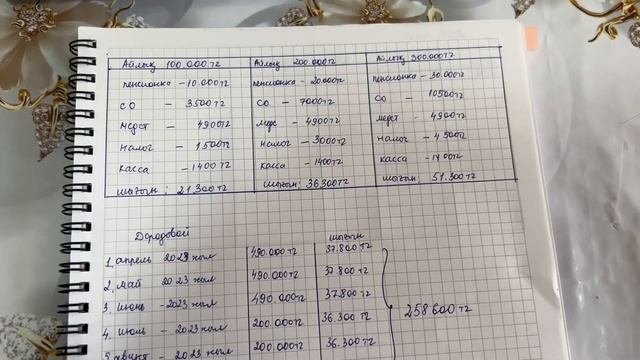 Айлық 100.000тг Айлық 200.000тг Айлық 300.000тг
пенсионка – 10.000тг пенсионка – 20.000тг пенсионка – 30.000тг
СО – 3500тг СО – 7000тг СО 10500тг
медст – 4900тг медст – 4900тг медст – 4900тг
налог – 1500тг налог – 3000тг налог – 4500тг
касса – 1400тг касса – 1400тг касса – 1400тг
шығын: 21.300тг шығын: 36.300тг шығын: 51.300тг
Дородовой шығын
1. апрель 2023 жыл 490.000тг 37.800тг
2. май 2023 жыл 490.000тг 37.800тг
3. июнь – 2023 жыл 490.000тг 37.800тг
4. июль – 2023 жыл 200.000тг 36.300тг 258600тг
5. август – 2023 жыл 200.000тг 36.300тг